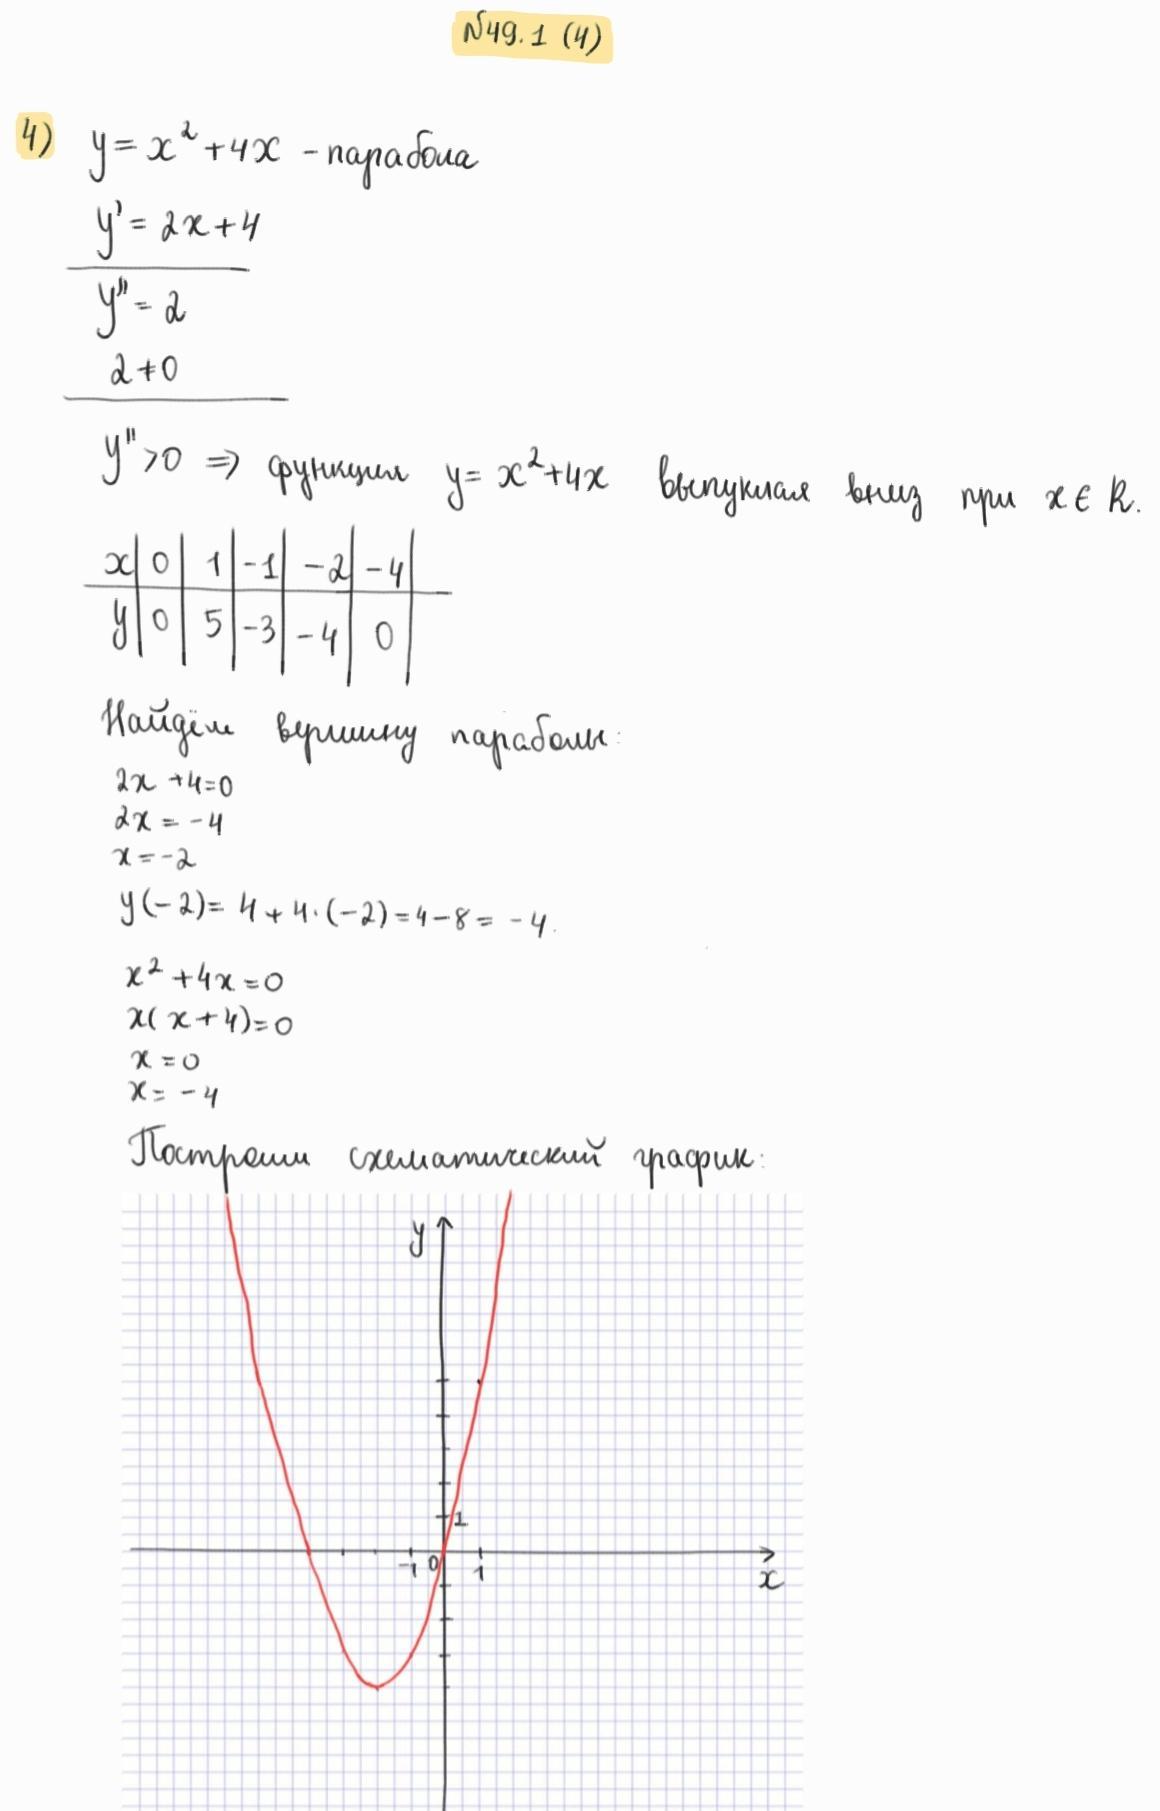 №49.1 (4)
4) y = x² + 4x - парабола
y' = 2x + 4
y'' = 2
2 ≠ 0
y'' > 0 ⇒ функция y = x² + 4x выпуклая вниз при x ∈ R.
x | 0 | 1 | -1 | -2 | -4 |
y | 0 | 5 | -3 | -4 | 0 |
Найдём вершину параболы:
2x + 4 = 0
2x = -4
x = -2
y(-2) = 4 + 4·(-2) = 4 - 8 = -4.
x² + 4x = 0
x(x + 4) = 0
x = 0
x = -4
Построим схематический график:
y
1
-1 0 1
x